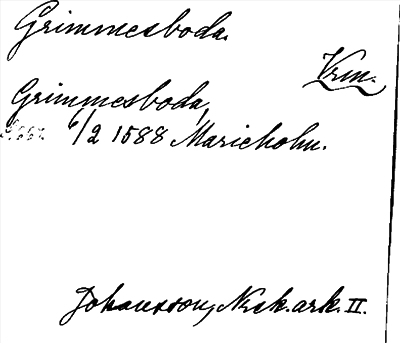 Grimmesboda.
Vrm.
Grimmesboda,
6/2 1588 Marieholm.
Johansson, Nsk. ark. II.